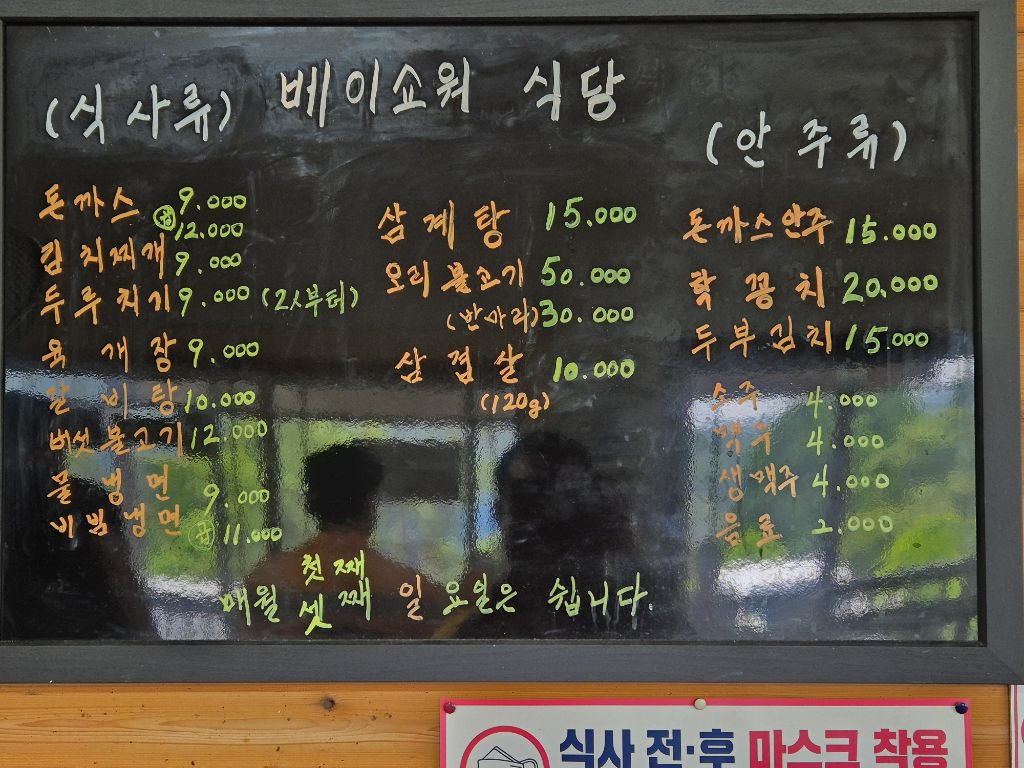 베이쇼워 식당
(식사류)
돈까스 9.000
곱 12.000
김치찌개 9.000
두루치기 9.000 (2人부터)
육개장 9.000
갈비탕 10.000
버섯불고기 12.000
물냉면
비빔냉면 9.000
곱 11.000
삼계탕 15.000
오리불고기 50.000
(반마리) 30.000
삼겹살 10.000
(120g)
(안주류)
돈까스안주 15.000
학꽁치 20,000
두부김치 15.000
소주 4.000
맥주 4.000
생맥주 4.000
음료 2.000
매월 첫째 셋째 일요일은 쉽니다.
식사 전·후 마스크 착용